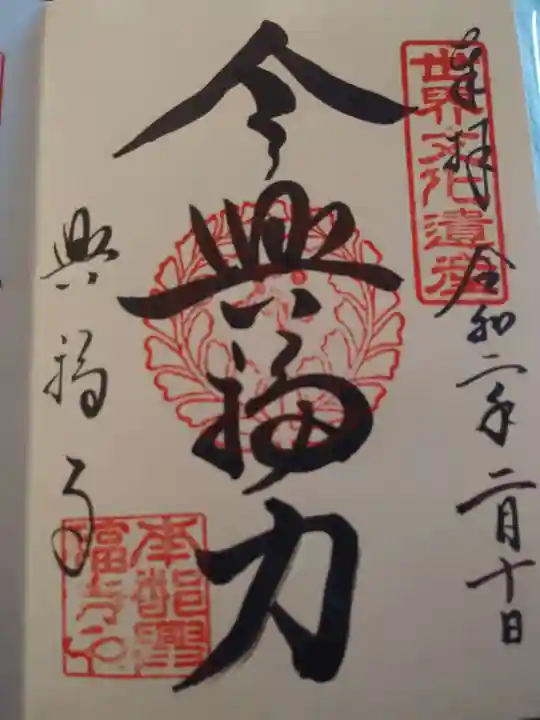 奉拝 令和二年二月十日
世界文化遺産
令興福力
興福寺